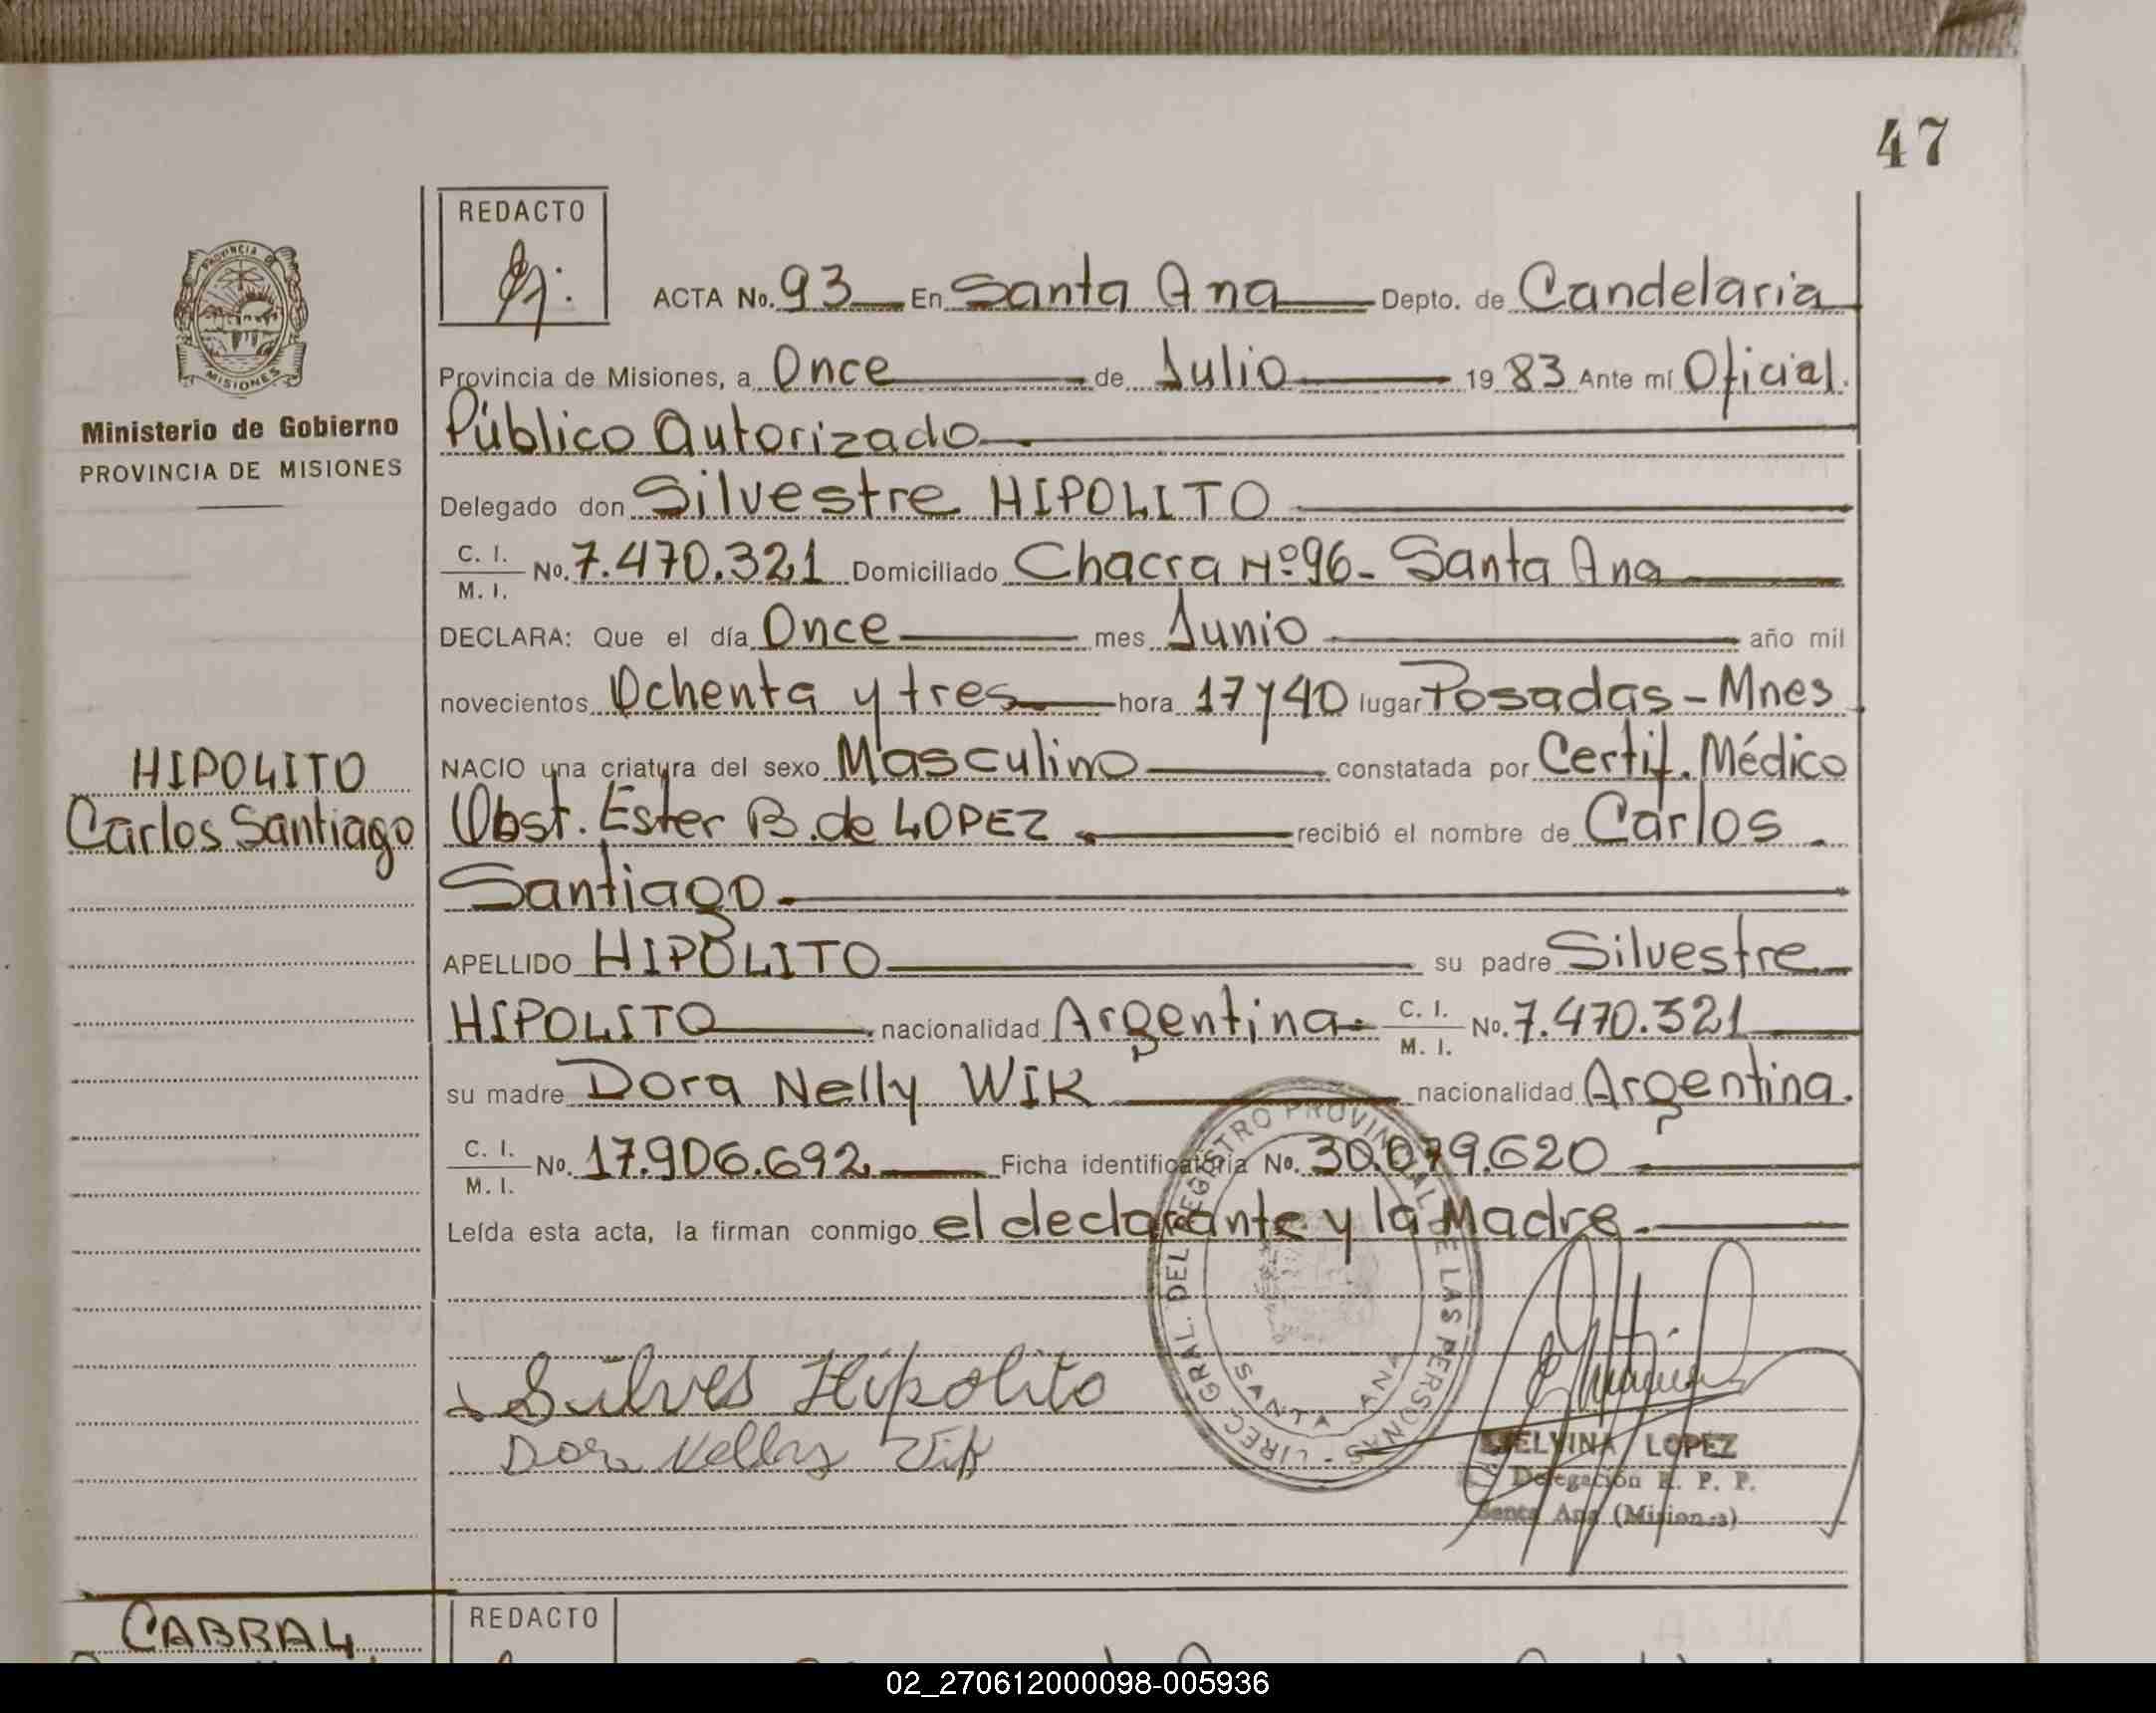 47
REDACTO
ACTA No. 93 En Santa Ana Depto. de Candelaria
Provincia de Misiones, a Once de Julio 1983 Ante mí Oficial
Público Autorizado
Delegado don Silvestre HIPOLITO
C. I. M. I. No. 7.470.321 Domiciliado Chacra Nº 96 - Santa Ana
DECLARA: Que el día Once mes Junio año mil
novecientos Ochenta y tres hora 17 y 40 lugar Posadas - Mnes
NACIO una criatura del sexo Masculino constatada por Certif. Médico
Obst. Ester B. de LOPEZ recibió el nombre de Carlos
Santiago
APELLIDO HIPOLITO su padre Silvestre
HIPOLITO nacionalidad Argentina. C. I. M. I. No. 7.470.321
su madre Dora Nelly WIK nacionalidad Argentina.
C. I. M. I. No. 17.906.692 Ficha identificatoria No. 30.079.620
Leída esta acta, la firman conmigo el declarante y la Madre.
PROVINCIA DE
MISIONES
Ministerio de Gobierno
PROVINCIA DE MISIONES
HIPOLITO
Carlos Santiago
Silves Hipolito
Dora Nelly Wik
DIREC. GRAL. DEL REGISTRO PROVINCIAL DE LAS PERSONAS
SANTA ANA
ELVINA LOPEZ
Delegación R. P. P.
Santa Ana (Misiones)
CABRAL
REDACTO
02_270612000098-005936